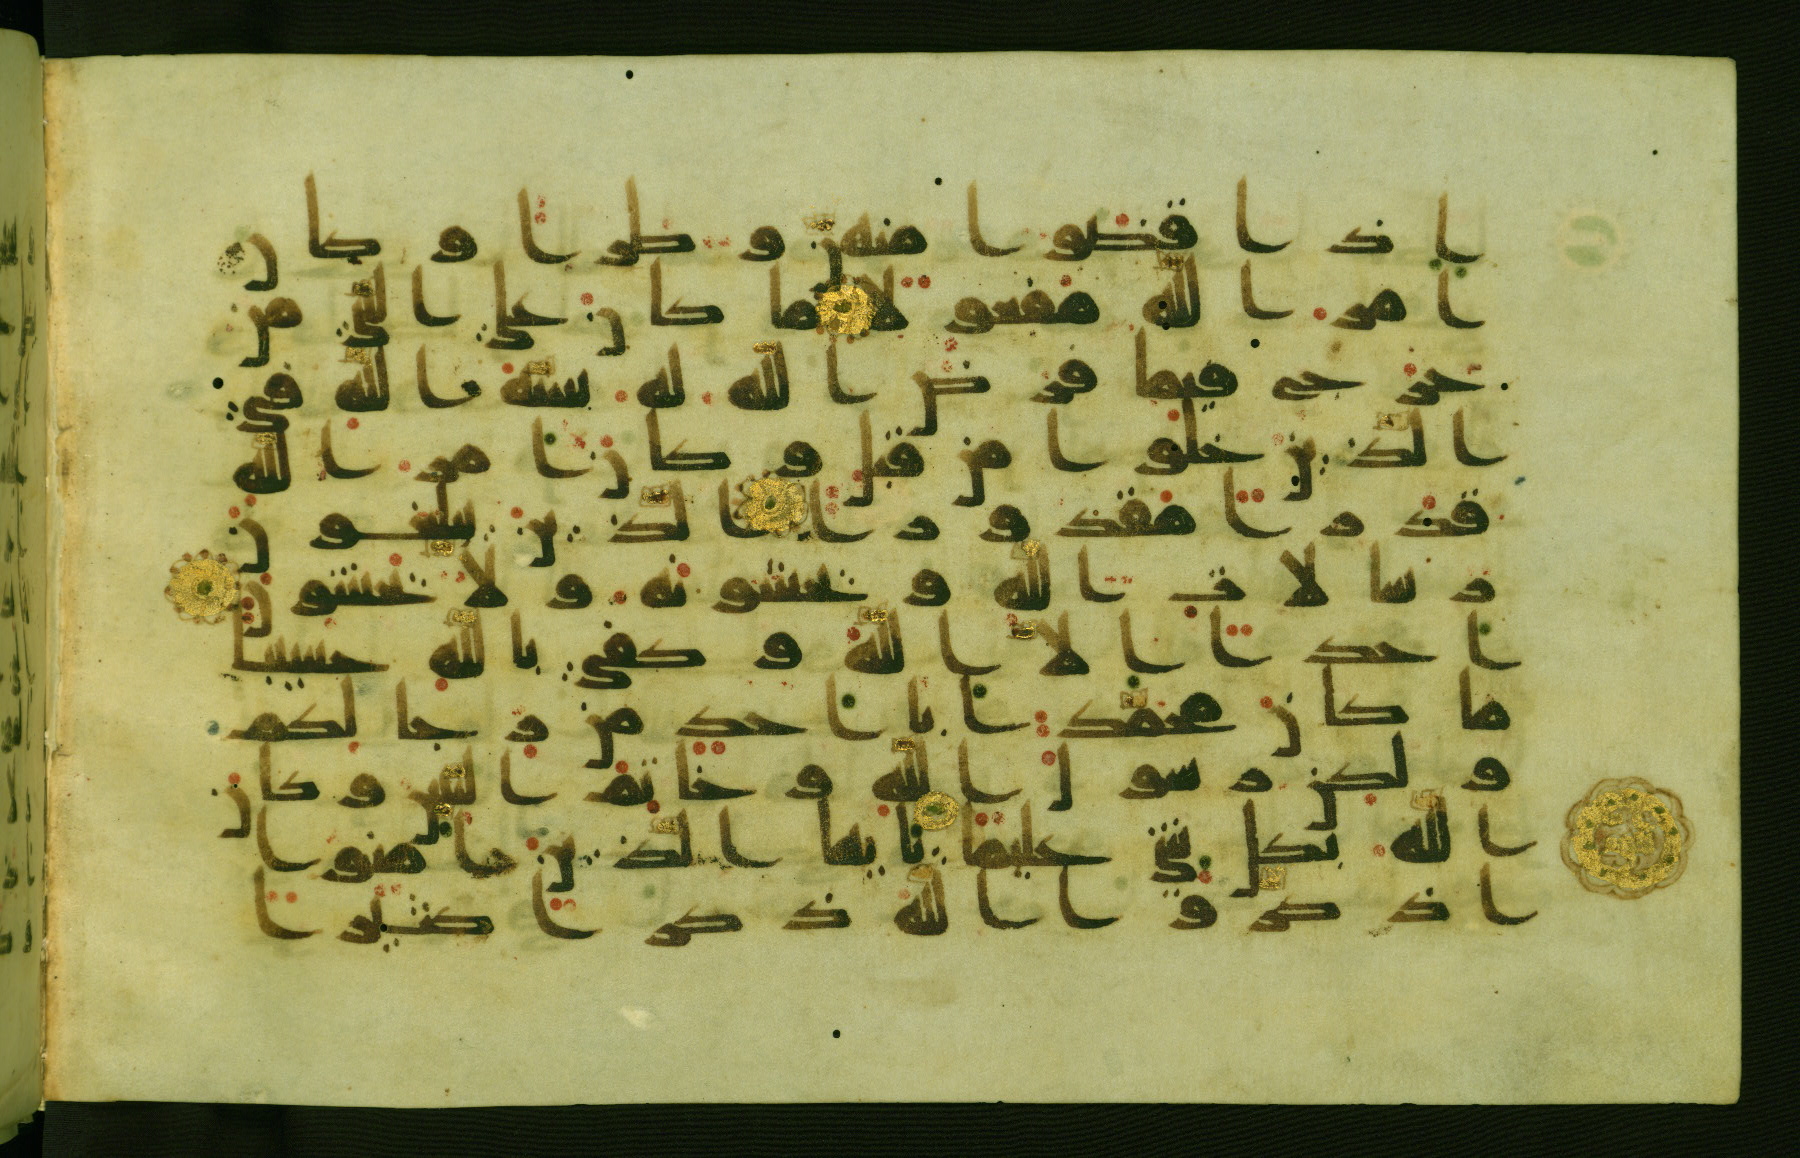 اذا قضوا منهن وطرا وكان
امر الله مفعولا ما كان على النبي من
حرج فيما فرض الله له سنة الله في
الذين خلوا من قبل وكان امر الله
قدرا مقدورا الذين يبلغون
رسالات الله ويخشونه ولا يخشون
احدا الا الله وكفى بالله حسيبا
ما كان محمد ابا احد من رجالكم
ولكن رسول الله وخاتم النبين وكان
الله بكل شي عليما يايها الذين امنوا
اذكروا الله ذكرا كثيرا